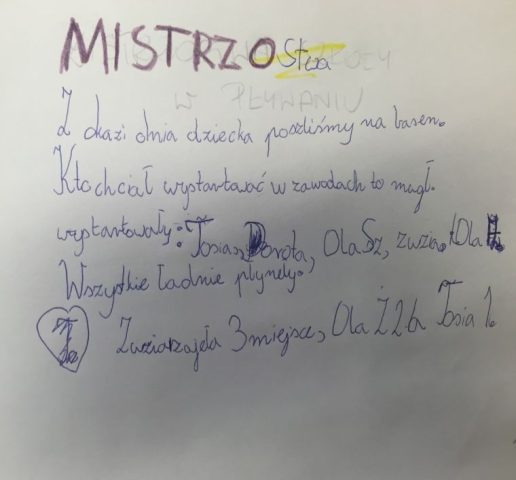 MISTRZOStwa
W PŁYWANIU
Z okazi dnia dziecka poszliśmy na basen.
Kto chciał wystartować w zawodach to mugł.
wystartowały: Tosia, Dorota, Ola Sz, Zuzia. i Ola
Wszystkie ładnie płynęły.
Zuzia zajęła 3 miejsce, Ola Ż 2 b Tosia 1.